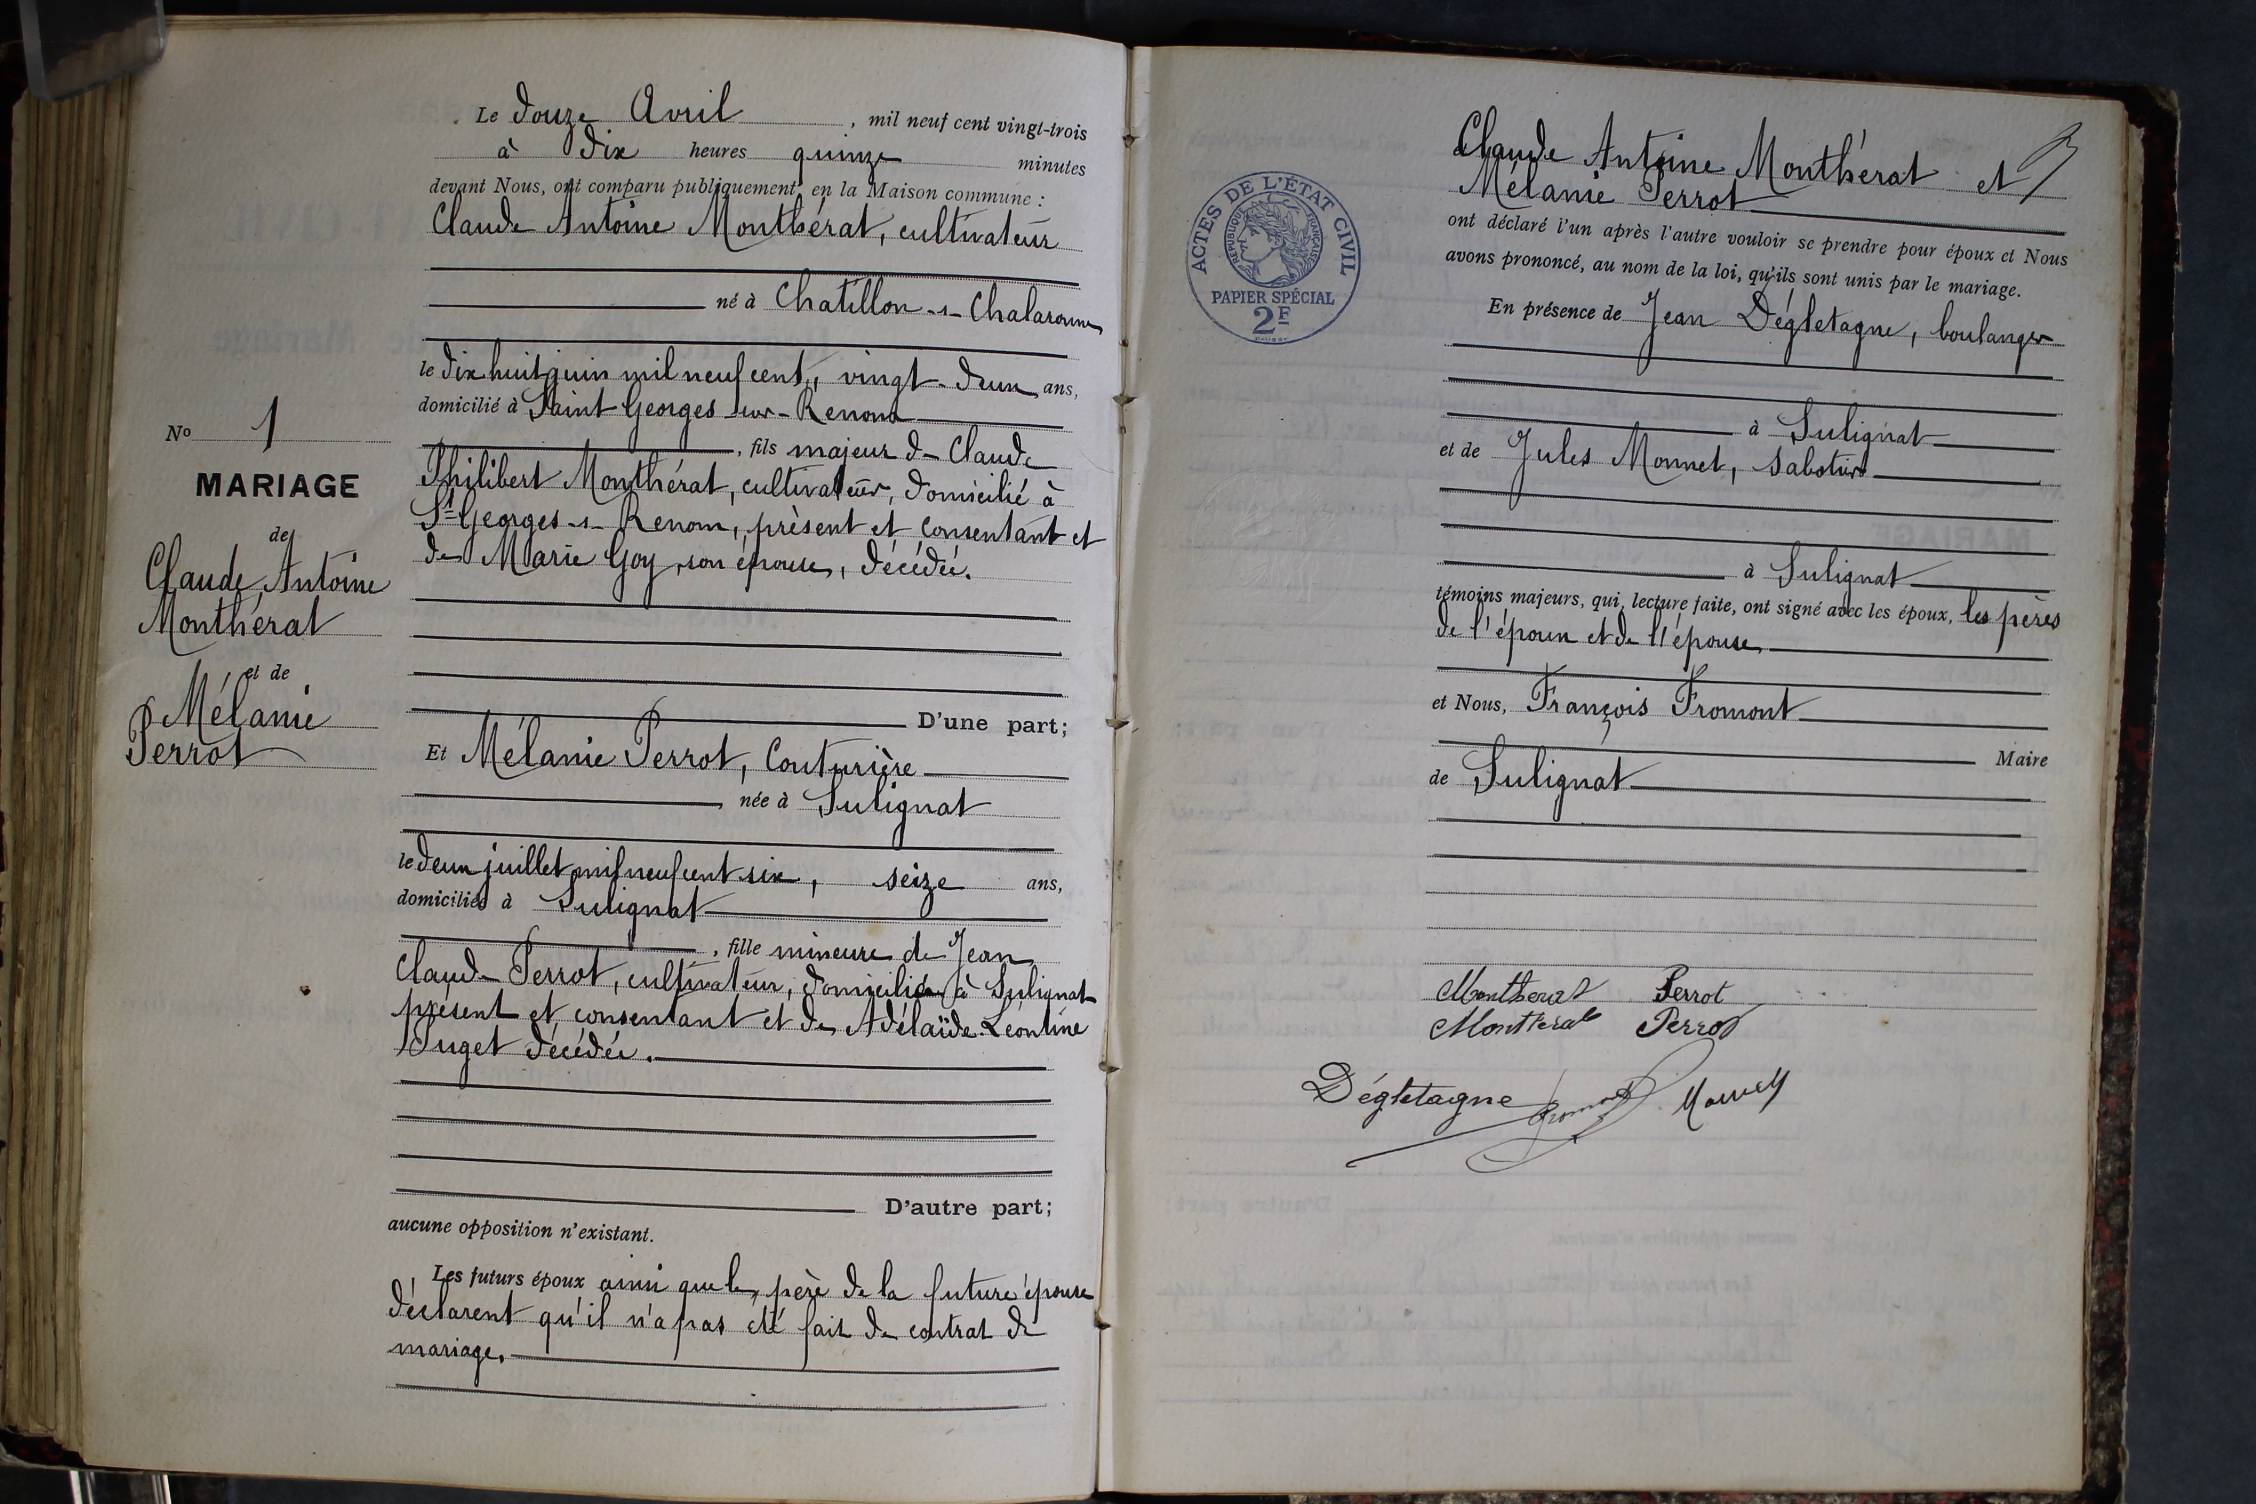 Le douze Avril, mil neuf cent vingt-trois
à dix heures quinze minutes
devant Nous, ont comparu publiquement en la Maison commune :
Claude Antoine Monthérat, cultivateur
né à Chatillon-s-Chalaronne
le dix huit juin mil neuf cent, vingt-deux ans,
domicilié à Saint Georges sur-Renom
, fils majeur de Claude
Philibert Monthérat, cultivateur, domicilié à
St Georges-s-Renom, présent et consentant et
de Marie Goy, son épouse, décédée.
D'une part;
No 1
MARIAGE
de
Claude Antoine
Monthérat
et de
Mélanie
Perrot
Et Mélanie Perrot, Couturière
née à Sulignat
le deux juillet mil neuf cent six, seize ans,
domiciliée à Sulignat
, fille mineure de Jean
Claude Perrot, cultivateur, domicilié à Sulignat
présent et consentant et de Adélaïde Léontine
Puget décédée.
D'autre part;
aucune opposition n'existant.
Les futurs époux ainsi que le père de la future épouse
déclarent qu'il n'a pas été fait de contrat de
mariage.
Claude Antoine Monthérat et
Mélanie Perrot
ont déclaré l'un après l'autre vouloir se prendre pour époux et Nous
avons prononcé, au nom de la loi, qu'ils sont unis par le mariage.
En présence de Jean Dégletagne, boulanger
à Sulignat
et de Jules Monnet, sabotier
à Sulignat
témoins majeurs, qui, lecture faite, ont signé avec les époux, les pères
de l'époux et de l'épouse
et Nous, François Fromont
Maire
de Sulignat
ACTES DE L'ÉTAT CIVIL
RÉPUBLIQUE FRANÇAISE
PAPIER SPÉCIAL
2F
Montherat Perrot
Montherat Perrot
Dégletagne Fromont Monnet